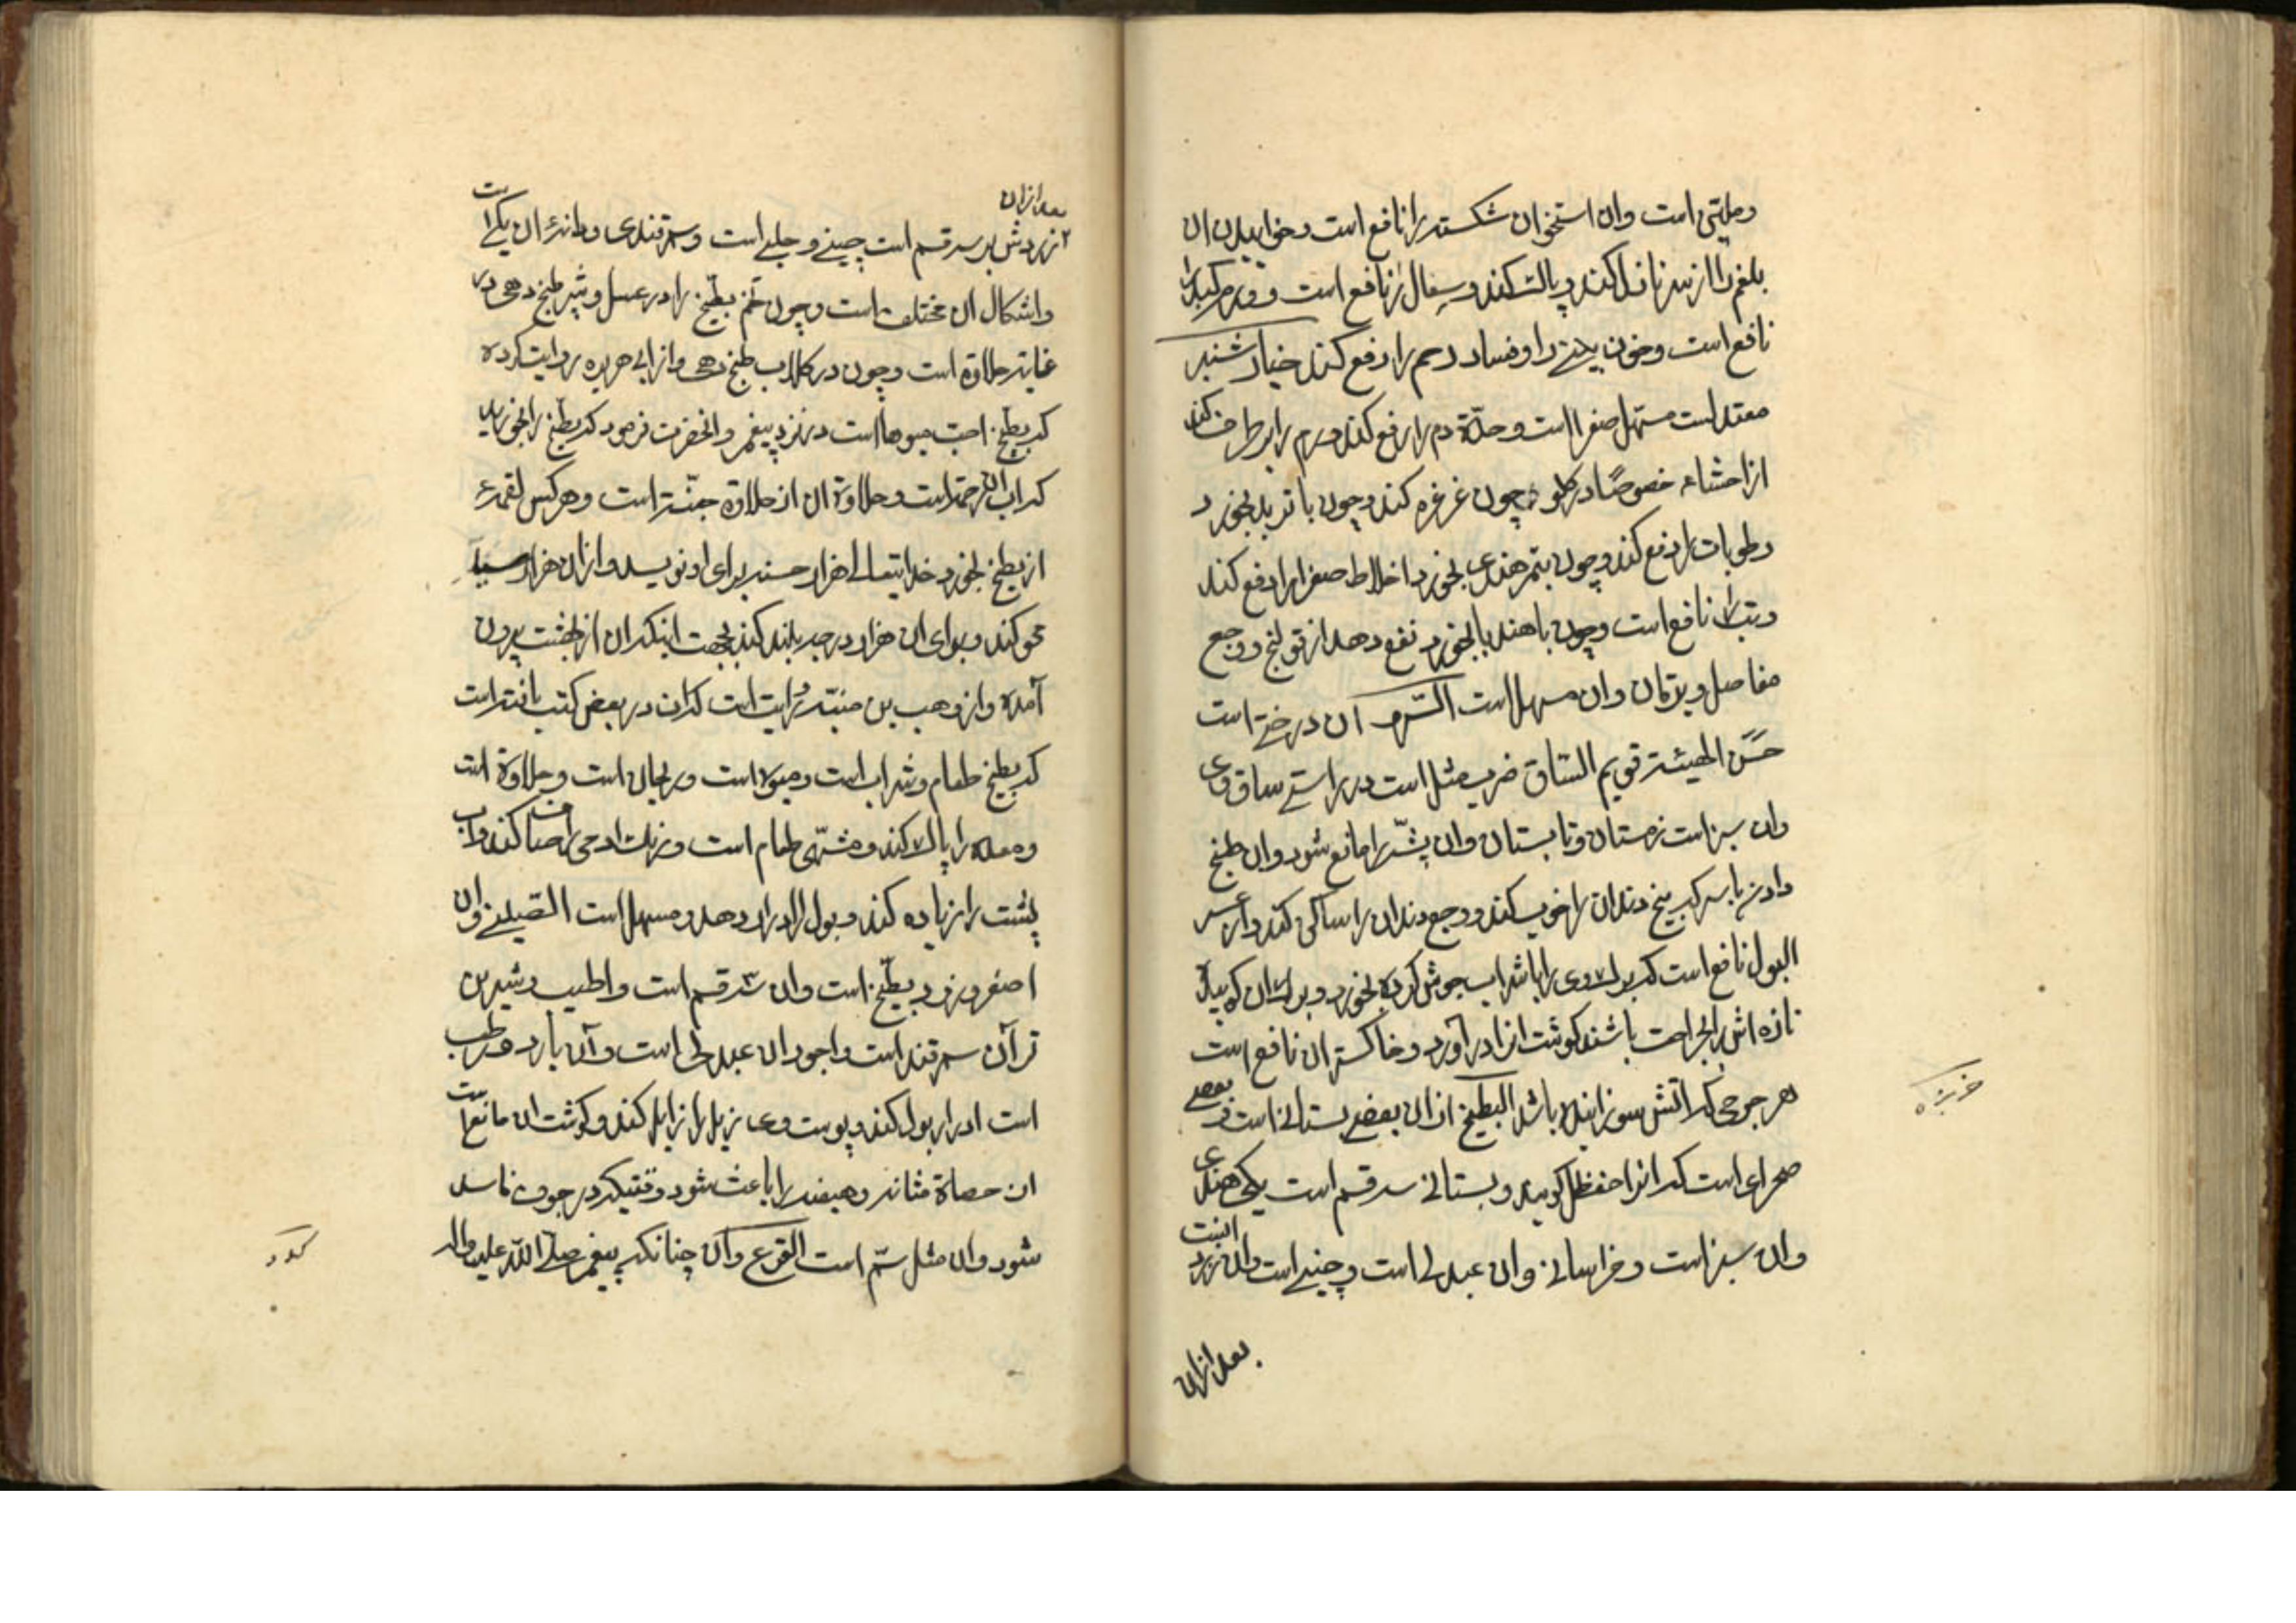 وملیتی است وان استخوان شکسته را نافع است وخوابیدن ان
بلغم را از سر نازل کند و پاک کند وسعال را نافع است و ورم کبد را
نافع است وخون بینی را وفساد رحم را دفع کند خیار شنبر
معتدلست مسهل صفرا است وحدّة دم را رفع کند وورم را برطرف کند
از احشاء خصوصًا در گلو چون غرغره کند وچون با تربد بخورد
رطوبات را دفع کند وچون بتمر هندی بخورد اخلاط صفرا را دفع کند
وتب را نافع است وچون با هندبا بخورد نفع دهد از قولنج ووجع
مفاصل ویرقان وان مسهل است السّرو ان درختی است
حَسَن الهیئة قویم السّاق ضرب مثل است در راستی ساق وی
وان سبز است زمستان وتابستان وان پشّه را مانع شود وان طبخ
دادن با سرکه بیخ دندان را خوب کند ووجع دندان را ساکن کند واز عسر
البول نافع است که برک وی را با شراب جوش کرده بخورد وبرک ان که
تازه اش را بجراحت باشند گوشت انرا در آورد وخاکستر ان نافع است
هر جرحی که از آتش سوزانیده باشد البطیخ از ان بعضی بستانی است وبعضی
صحرای است که انرا حنظل گویند وبستانی سه قسم است یکی هندی
وان سبز است وخراسانی وان عبدلی است وچینی است وان زرد است
بعد از ان
خربزه
بعد از ان
زردش بر سه قسم است چینی وحلبی است وسمرقندی ومانند ان یکی است
واشکال ان مختلف است وچون تخم بطّیخ را در عسل وشیر طبخ دهی در
غایة حلاوة است وچون در گلاب طبخ دهی واز ابی هریره روایت کرده
که بطّیخ احبّ میوها است در نزد پیغمبر وانحضرت فرمود که بطّیخ را بخورید
که اب ان رحمة است وحلاوة ان از حلاوة جنّة است وهر کس لقمهٔ
از بطّیخ بخورد خدایتعالی هزار حسنه برای او نویسد واز ان هزار سیّئه
محو کند وبرای ان هزار درجه بلند کند بجهت اینکه ان از بهشت بیرون
آمده واز وهب بن منبّه روایت است که ان در بعض کتب یافته است
که بطّیخ طعام وشراب است ومیوه است وریحان است وحلاوة است
ومعده را پاک کند ومشهّی طعام است ورنگ ادمی را صاف کند واب
پشت را زیاده کند وبول را ادرار دهد ومسهل است القسم الصّینی وان
اصفر وزرد بطّیخ است وان سه قسم است واطیب وشیرین
تر آن سمرقند است واجود ان عبدلی است وآن بارد ورطب
است ادرار بول کند وپوست وی زیل را زایل کند وگوشت ان مانع است
ان حصاة مثانه وهیضه را باعث شود وقتیکه در جوف فاسد
شود وان مثل سمّ است القرع وآن چنانکه پیغمبر صلّی اللّه علیه واله
کدو